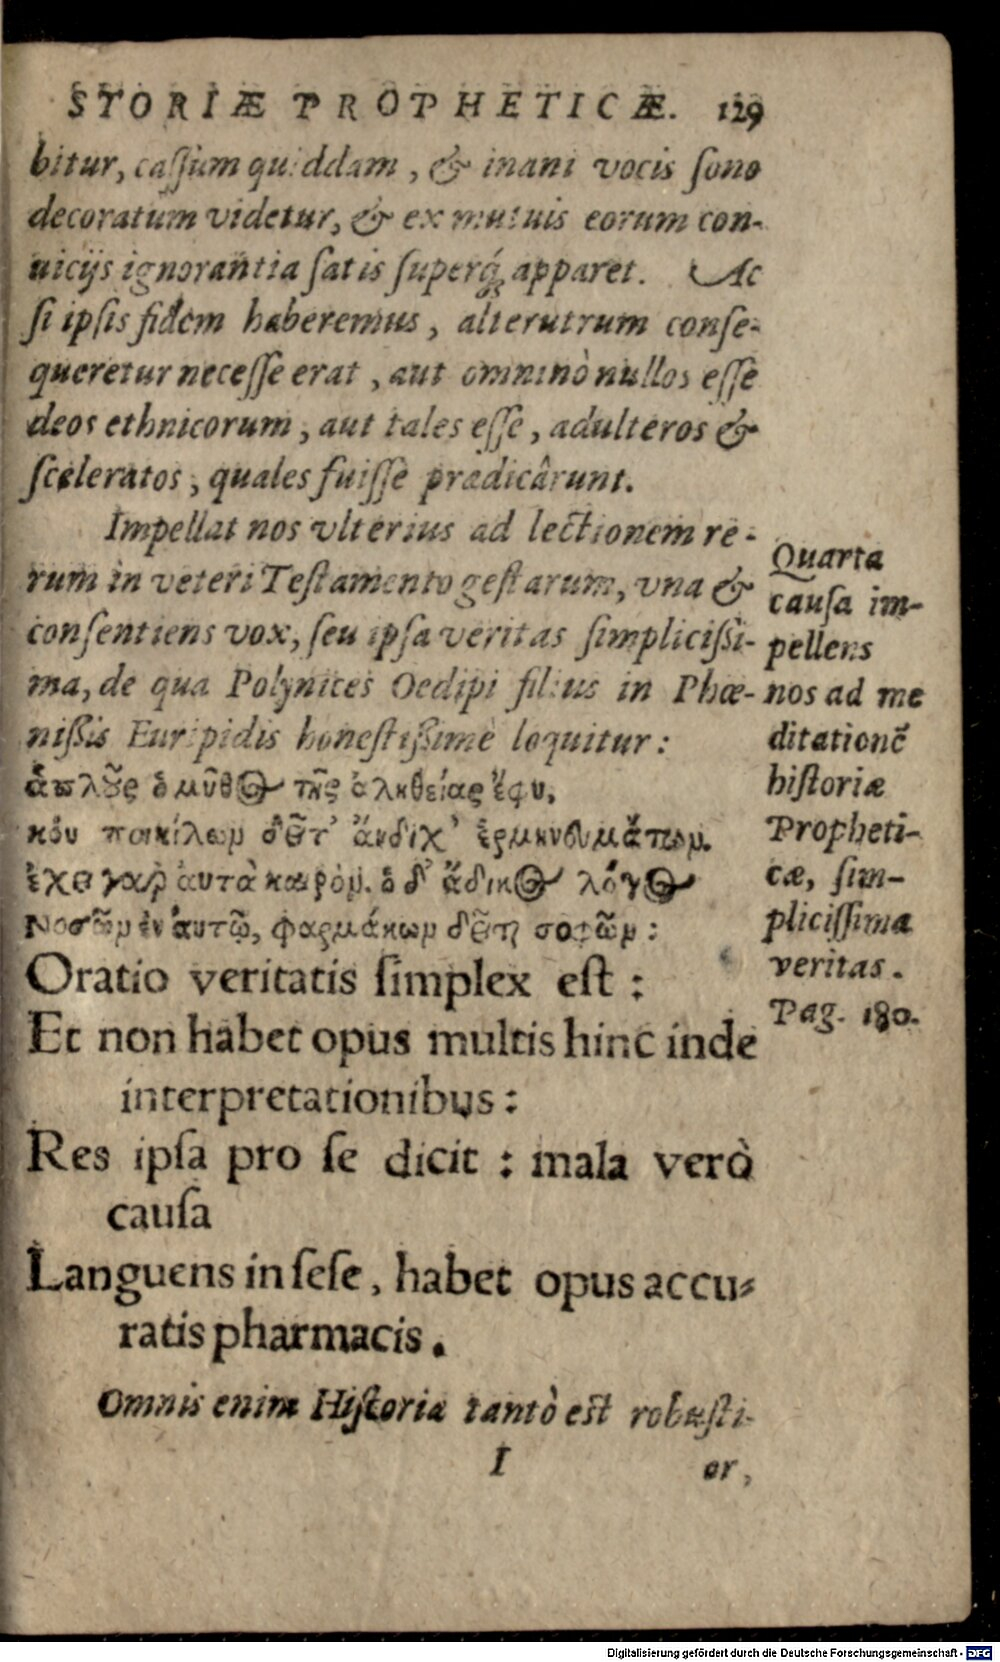 STORIÆ PROPHETICÆ. 129
bitur, caſſum quiddam, & inani vocis ſono
decoratum videtur, & ex mutuis eorum con-
uicijs ignorantia ſatis ſuperq́; apparet. Ac
ſi ipſis fidem haberemus, alterutrum conſe-
queretur neceſſe erat, aut omninò nullos eſſe
deos ethnicorum, aut tales eſſe, adulteros &
ſceleratos, quales fuiſſe prædicârunt.
Impellat nos vlterius ad lectionem re-
rum in veteri Teſtamento geſtarum, vna &
conſentiens vox, ſeu ipſa veritas ſimpliciſsi-
ma, de qua Polynices Oedipi filius in Phœ-
niſsis Euripidis honeſtiſsimè loquitur:
ἁπλοῦς ὁ μῦθος τῆς ἀληθείας ἔφυ,
κὀυ ποικίλων δεῖτ' ἄνδιχ' ἑρμηνευμάτων.
ἔχει γαρ ἀυτὰ καιρόν. ὁ δ' ἄδικος λόγος
Νοσῶν ἐν ἁυτῷ, φαρμάκων δεῖτη σοφῶν:
Oratio veritatis ſimplex eſt:
Et non habet opus multis hinc inde
interpretationibus:
Res ipſa pro ſe dicit: mala verò
cauſa
Languens in ſeſe, habet opus accu-
ratis pharmacis.
Omnis enim Hiſtoria tantò eſt robuſti-
I or,
Quarta
cauſa im-
pellens
nos ad me
ditationẽ
hiſtoriæ
Propheti-
cæ, ſim-
pliciſſima
veritas.
Pag. 180.
Digitalisierung gefördert durch die Deutsche Forschungsgemeinschaft - DFG